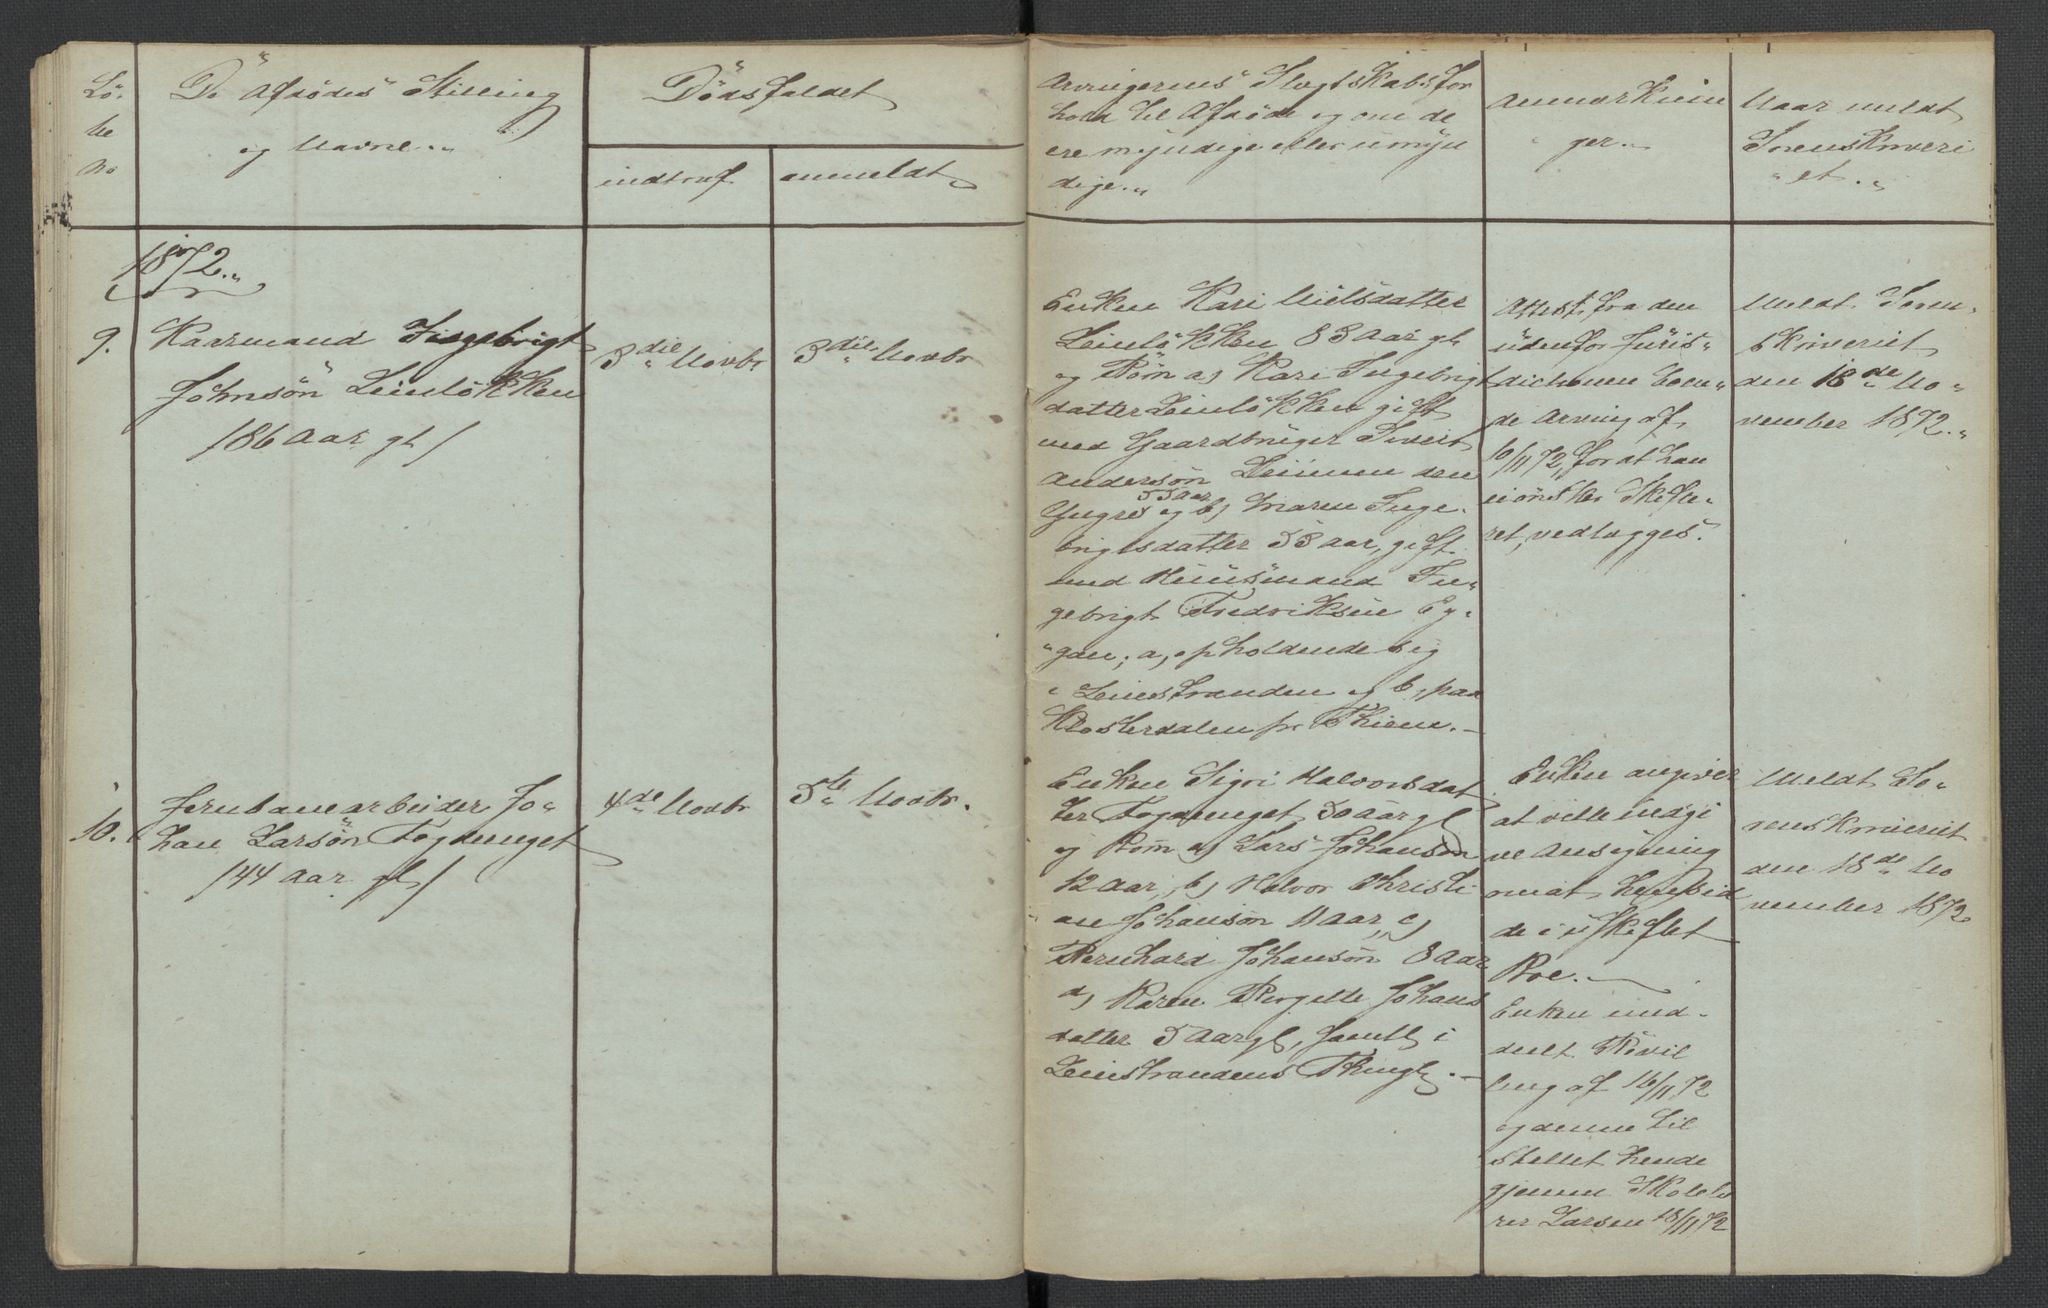 Lö-
be
No
De Afdödes Stilling
og Navne.
Dödsfaldet
indtraf
anmeldt
Arvingernes Slægtskabsfor
hold til Afdöde og om de
ere myndige eller umyn
dige.
Anmærknin
ger.
Naar meldt
Sorenskriveri
et.
1872.
9.
Kaarmand Ingebrigt
Johnsön Leinlökken
/86 Aar gl/
3die Novbr
3die Novbr
Enken Kari Nielsdatter
Leinlökken 83 Aar gl
og Börn a) Kari Ingebrigt
datter Leinlökken gift
med Gaardbruger Sivert
Andersön Leinum den
55 Aar
Yngre og b) Maren Inge-
brigtsdatter 53 Aar, gift
med Huusmand In-
gebrigt Fredriksen By-
gan; a, opholdende sig
i Leinstranden og b, paa
Klosterdalen pr Thiem.
Attest fra den
udenfor Juris-
dictionen boen-
de Arving af
16/11 72, for at han
ei önsker Skifte-
ret, vedlægges.
Meldt Soren-
skriveriet
den 18de No-
vember 1872.
10.
Jernbanearbeider Jo-
han Larsön Fogdenget
/44 Aar gl/
4de Novbr
5te Novbr.
Enken Sigri Halvorsdat
ter Fogdenget 50 Aar gl
og Börn a) Lars Johansön
12 Aar, b) Halvor Christi
an Johansön 11 Aar, c)
Bernhard Johansön 8 Aar
d) Karen Bergitte Johans
datter 5 Aar gl, samtl i
Leinstrandens Thinglg.
Enken angiver
at ville indgi
ve Ansögning
om at hensid
de i uskiftet
Boe.
Enken med-
deelt Bevil
ling af 16/11 72
og denne til
stillet hende
gjennem Skolelæ
rer Larsen 18/11 72
Meldt So-
renskriveriet
den 18de No
vember 1872